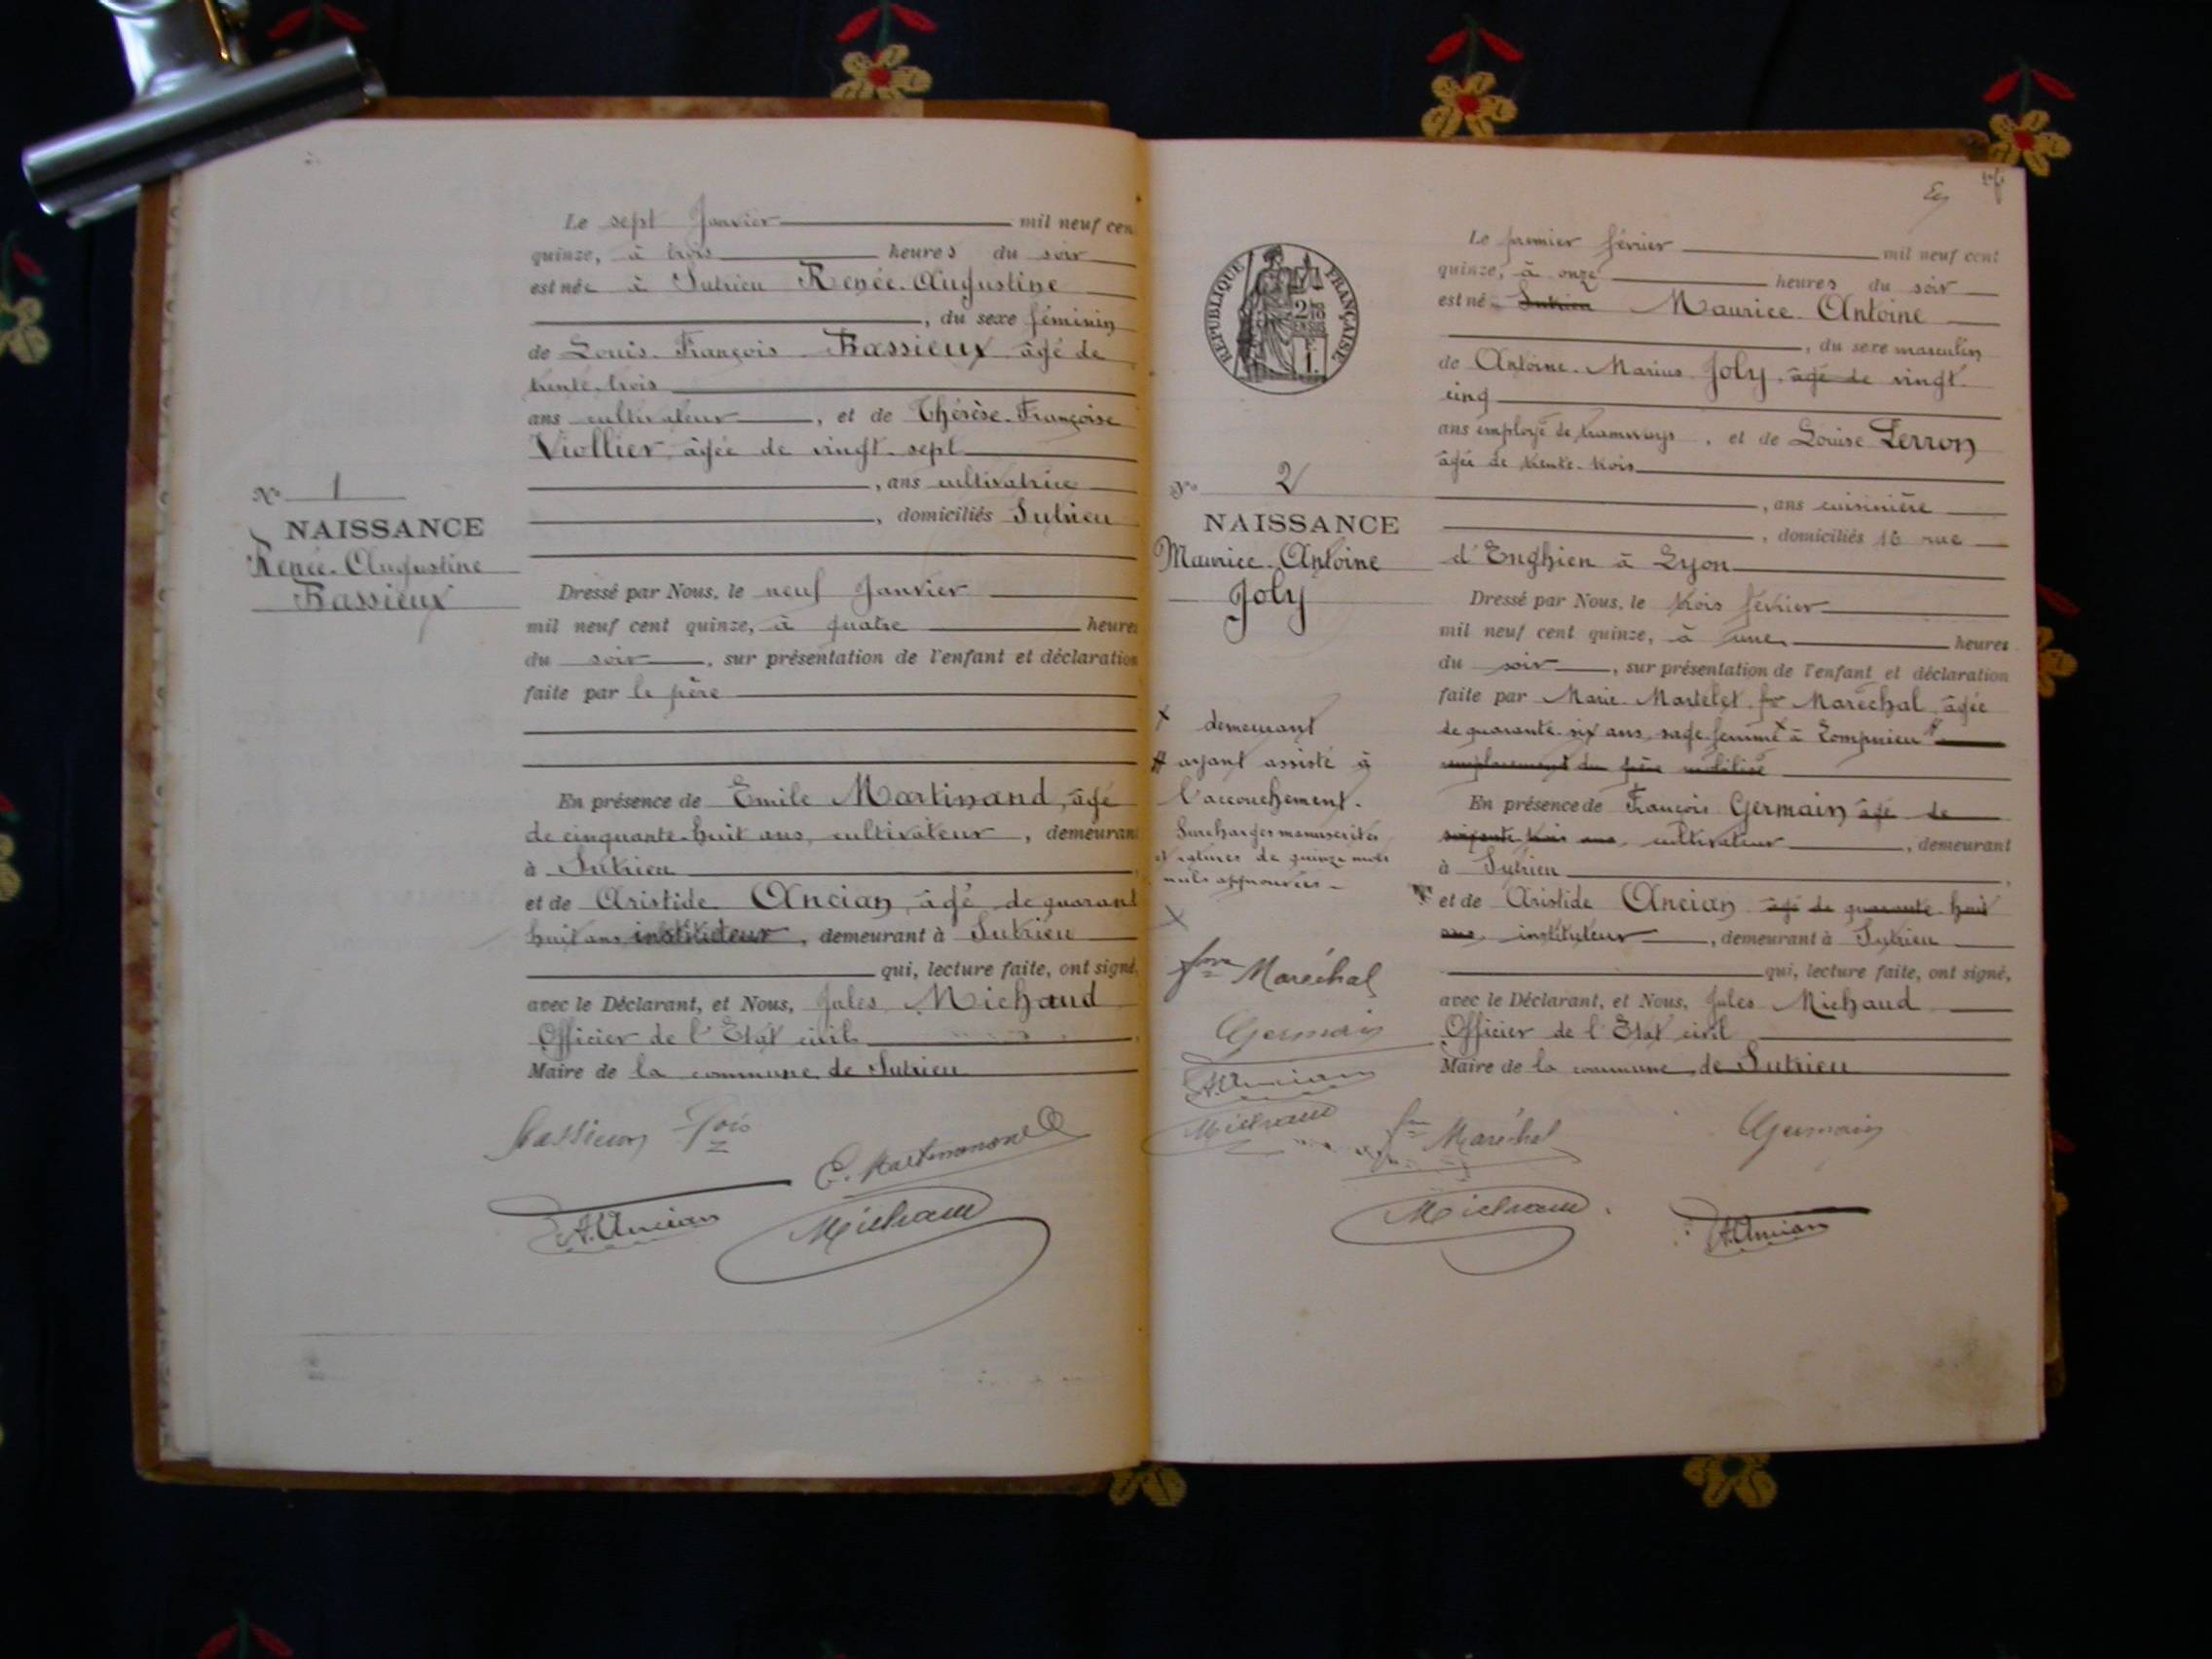 Le sept Janvier mil neuf cen
quinze, à trois heures du soir
est née à Sutrieu Renée-Augustine
, du sexe féminin
de Louis-François Bassieux âgé de
trente-trois
ans cultivateur, et de Thérèse-Françoise
Viollier, âgée de vingt-sept
, ans cultivatrice
, domiciliés Sutrieu
N° 1
NAISSANCE
Renée-Augustine
Bassieux
Dressé par Nous, le neuf Janvier
mil neuf cent quinze, à quatre heures
du soir, sur présentation de l'enfant et déclaration
faite par le père
En présence de Emile Martinand, âgé
de cinquante-huit ans, cultivateur, demeurant
à Sutrieu
et de Aristide Ancian, âgé de quarant
huit ans instituteur, demeurant à Sutrieu
qui, lecture faite, ont signé,
avec le Déclarant, et Nous, Jules Michaud
Officier de l'Etat civil
Maire de la commune de Sutrieu
Bassieux Fçois
E. Martinand
A. Ancian
Michaud
RÉPUBLIQUE FRANÇAISE
Le premier février mil neuf cent
quinze, à onze heures du soir
est né Sutrieu Maurice-Antoine
, du sexe masculin
de Antoine-Marius Joly, âgé de vingt-
cinq
ans employé de tramways, et de Louise Perron
âgée de trente-trois
, ans cuisinière
, domiciliés 16 rue
d'Enghien à Lyon
N° 2
NAISSANCE
Maurice-Antoine
Joly
Dressé par Nous, le trois février
mil neuf cent quinze, à une heures
du soir, sur présentation de l'enfant et déclaration
faite par Marie Martelet fme Maréchal, âgée
de quarante-six ans, sage-femme x à Lompnieu #
remplacement du père mobilisé
En présence de François Germain âgé de
soixante-trois ans, cultivateur, demeurant
à Sutrieu
et de Aristide Ancian âgé de quarante-huit
ans, instituteur, demeurant à Sutrieu
qui, lecture faite, ont signé,
avec le Déclarant, et Nous, Jules Michaud
Officier de l'Etat civil
Maire de la commune de Sutrieu
x demeurant
# ayant assisté à
l'accouchement.
Surcharges manuscrites
et ratures de quinze mots
nuls approuvées -
fme Maréchal
Germain
A. Ancian
Michaud
fme Maréchal
Germain
Michaud
A. Ancian